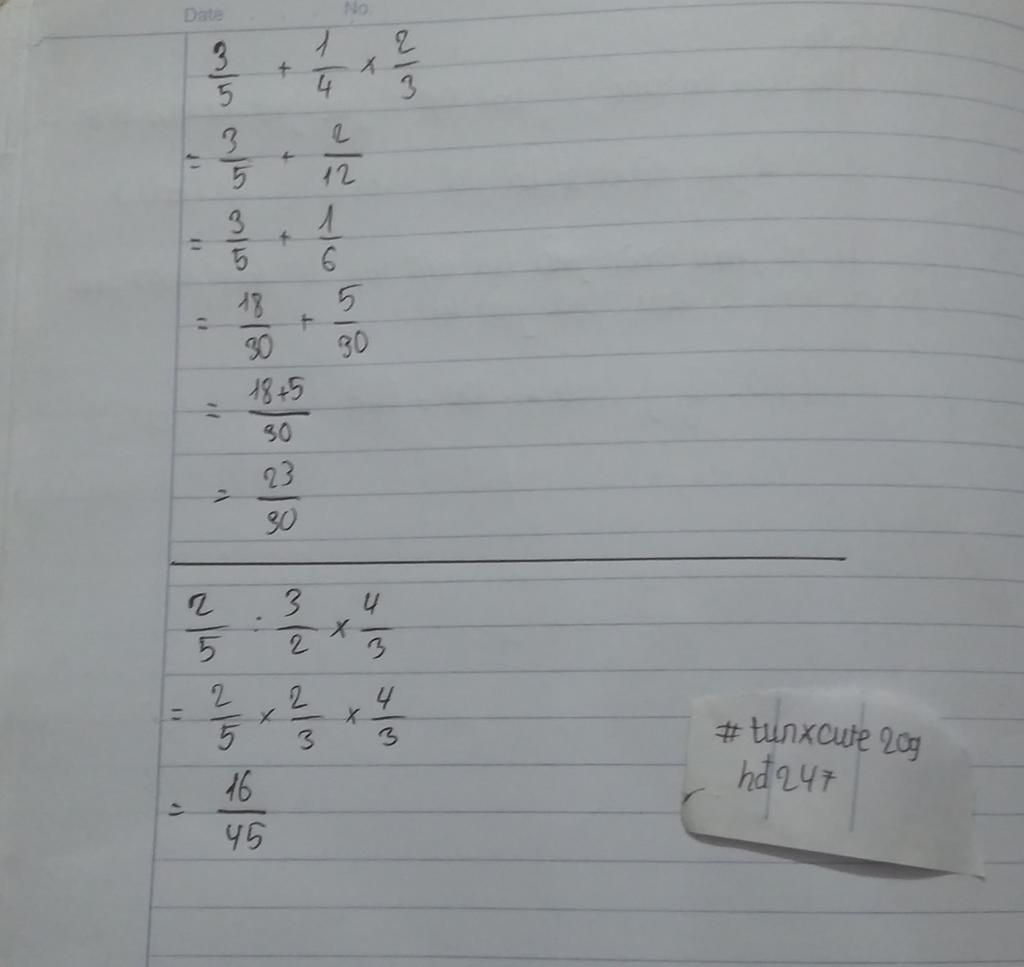 Date No.
3/5 + 1/4 × 2/3
= 3/5 + 2/12
= 3/5 + 1/6
= 18/30 + 5/30
= 18+5/30
= 23/30
2/5 : 3/2 × 4/3
= 2/5 × 2/3 × 4/3
= 16/45
# tunxcute2cg
hd247